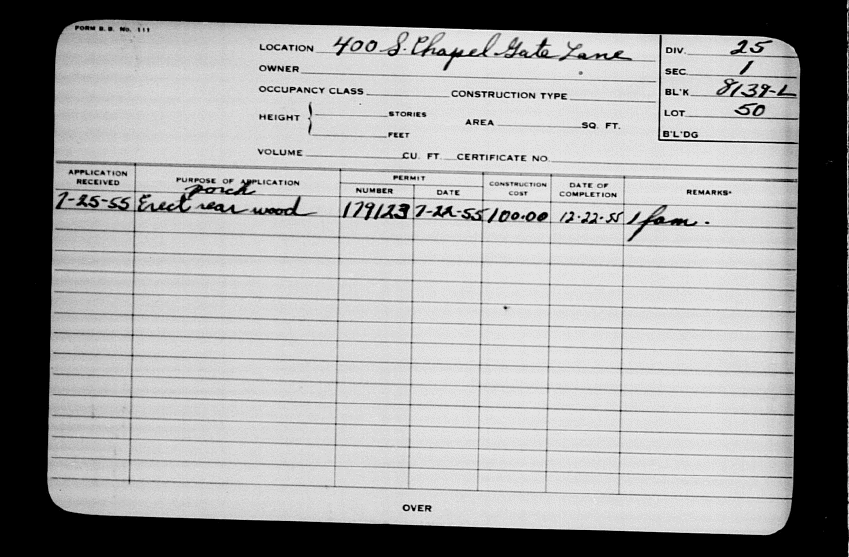 FORM B. B. No. 111
LOCATION 400 S. Chapel Gate Lane
DIV. 25
OWNER
SEC. 1
OCCUPANCY CLASS CONSTRUCTION TYPE
BL'K 8139-L
HEIGHT STORIES
FEET
AREA SQ. FT.
LOT 50
B'L'DG
VOLUME CU. FT. CERTIFICATE NO.
APPLICATION RECEIVED PURPOSE OF APPLICATION PERMIT NUMBER DATE CONSTRUCTION COST DATE OF COMPLETION REMARKS*
porch
7-25-55 Erect rear wood 179123 7-22-55 100.00 12-22-55 1 fam.
OVER